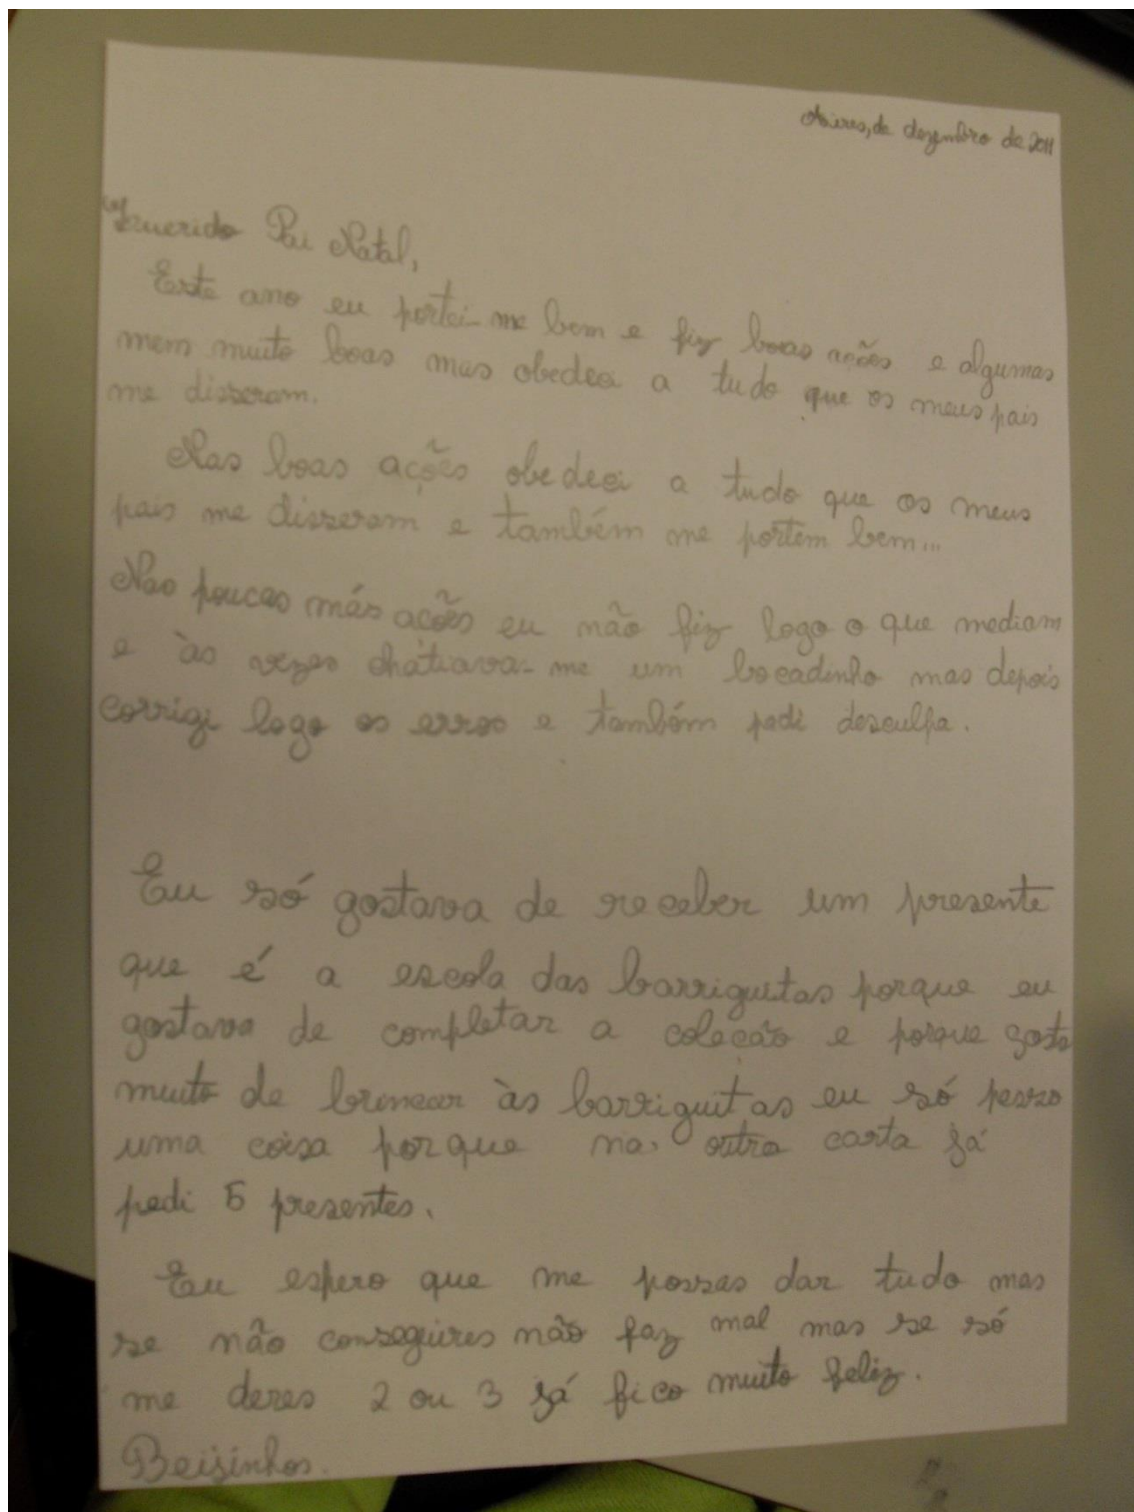 de dezembro de 2011
Querido Pai Natal,
Este ano eu portei-me bem e fiz boas ações e algumas
mem muito boas mas obedeci a tudo que os meus pais
me disseram.
Nas boas ações obedeci a tudo que os meus
pais me disseram e também me portem bem...
Nas poucas más ações eu não fiz logo o que mediam
e às vezes chátiava-me um bocadinho mas depois
corrigi logo os erros e também pedi desculpa.
Eu só gostava de receber um presente
que é a escola das barriguitas porque eu
gostava de completar a coleção e porque gosto
muito de brincar às barriguitas eu só pesso
uma coisa porque na outra carta já
pedi 5 presentes.
Eu espero que me possas dar tudo mas
se não conseguires não faz mal mas se só
me deres 2 ou 3 já fico muito feliz.
Beijinhos.